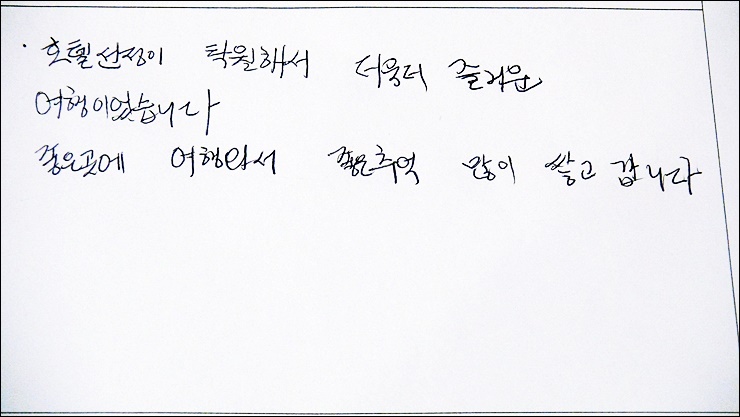 · 호텔선정이 탁월해서 더욱더 즐거운
여행이었습니다
좋은곳에 여행와서 좋은추억 많이 쌓고 갑니다